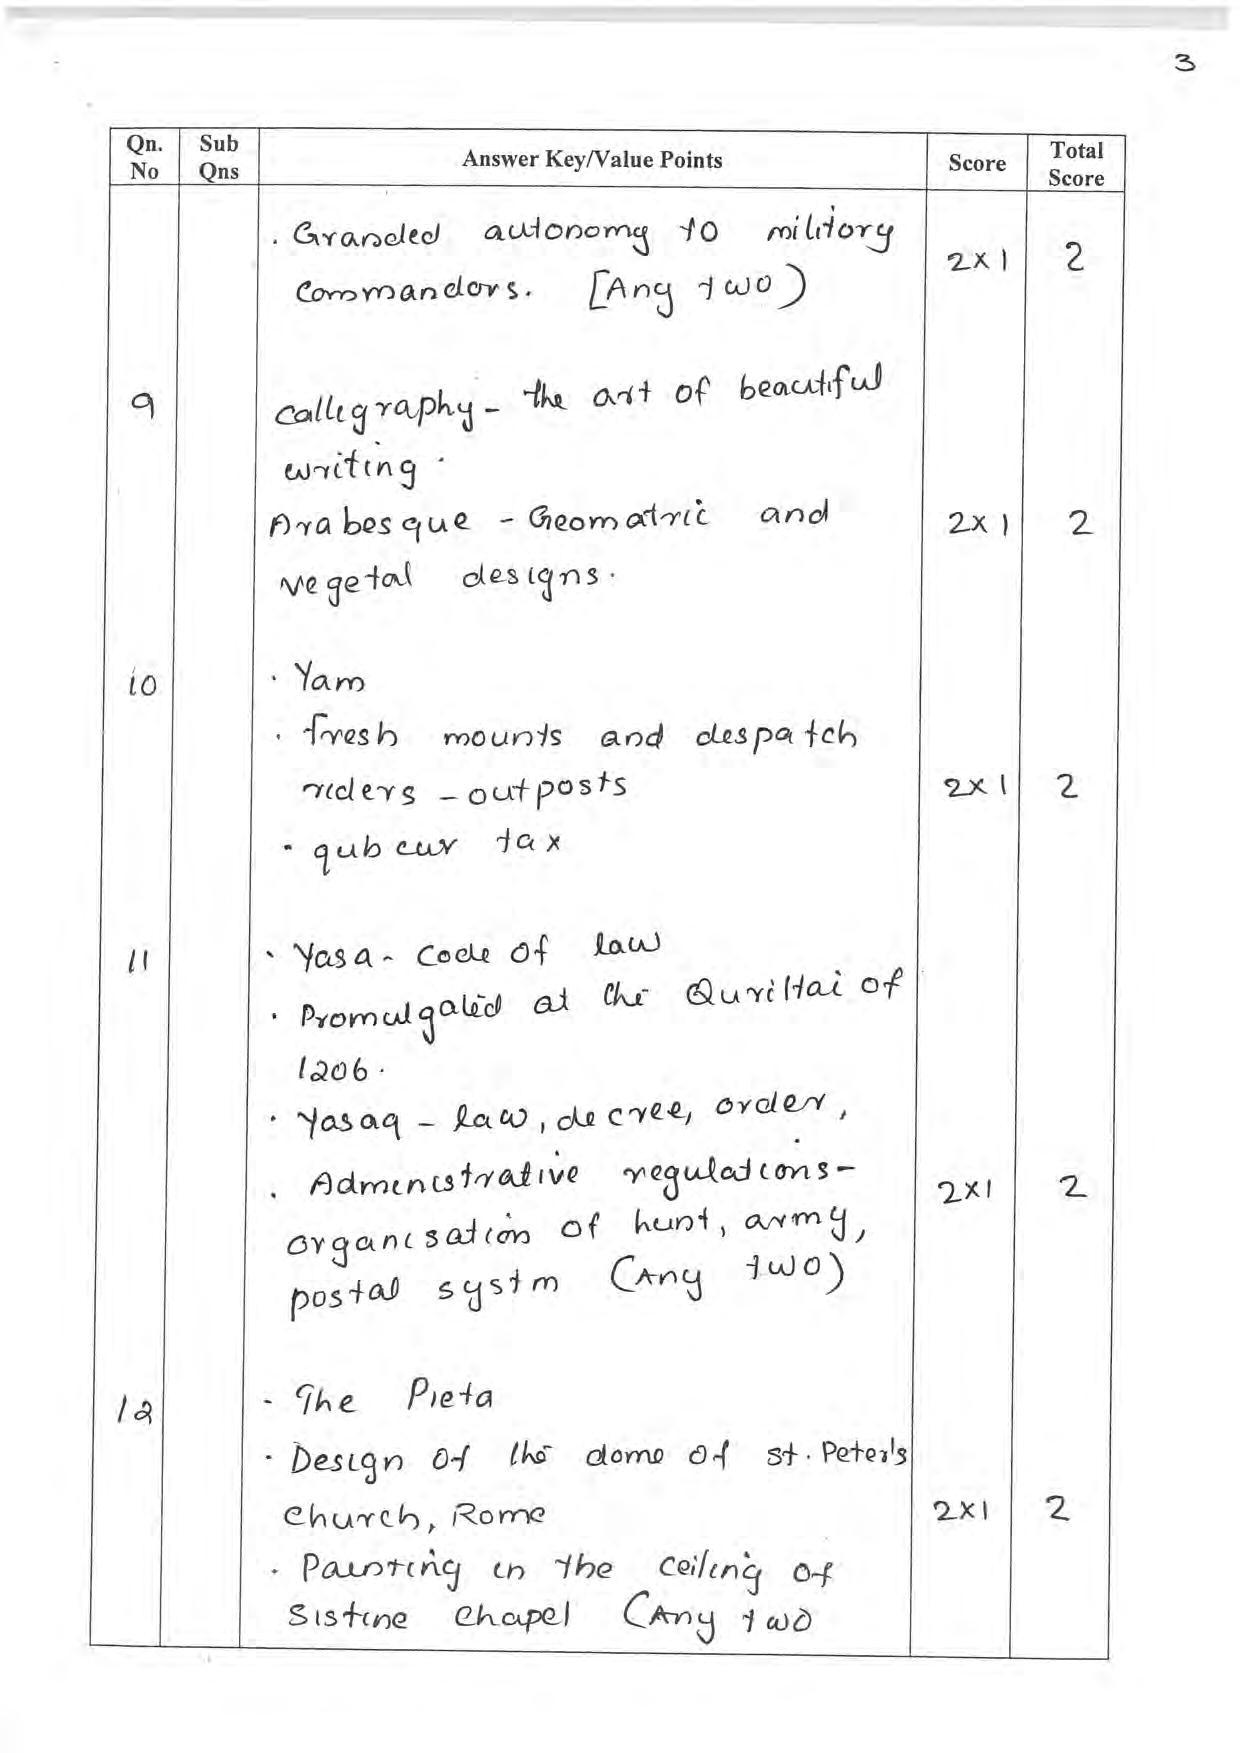 3
Qn. No Sub Qns Answer Key/Value Points Score Total Score
. Granded autonomy to military
Commandors. [Any two) 2x1 2
9 Calligraphy - the art of beautiful
writing .
Arabesque - Geomatric and 2x1 2
vegetal designs.
10 . Yam
. fresh mounts and despatch
riders - outposts 2x1 2
- qubcur tax
11 . Yasa - code of law
. Promulgated at the Quriltai of
1206.
. Yasaq - law, decree, order,
. Administrative regulations- 2x1 2
organisation of hunt, army,
postal systm (Any two)
12 - The Pieta
. Design of the dome of st. Peter's
church, Rome 2x1 2
. Painting in the ceiling of
Sistine chapel (Any two